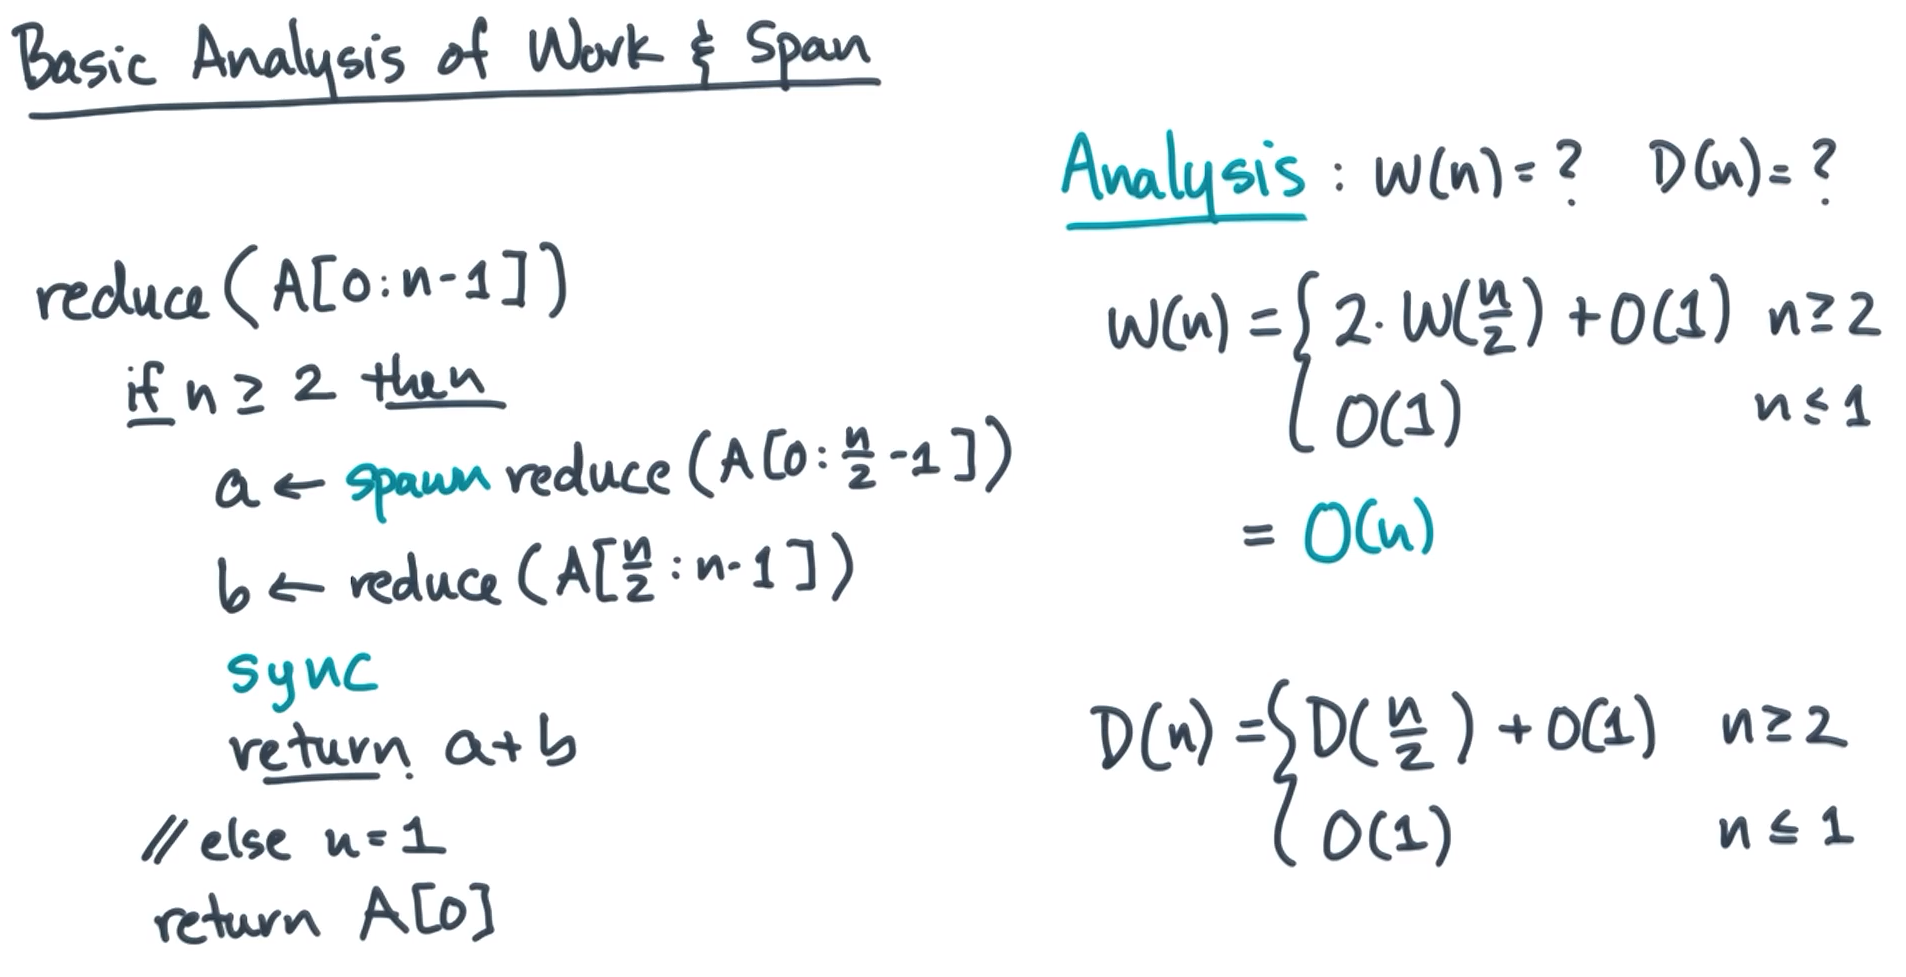 Basic Analysis of Work & Span
reduce (A[0:n-1])
if n ≥ 2 then
a ← spawn reduce (A[0:n/2-1])
b ← reduce (A[n/2:n-1])
sync
return a+b
// else n=1
return A[0]
Analysis : W(n)=? D(n)=?
W(n) = { 2·W(n/2) + O(1) n≥2
O(1) n≤1
= O(n)
D(n) = { D(n/2) + O(1) n≥2
O(1) n≤1